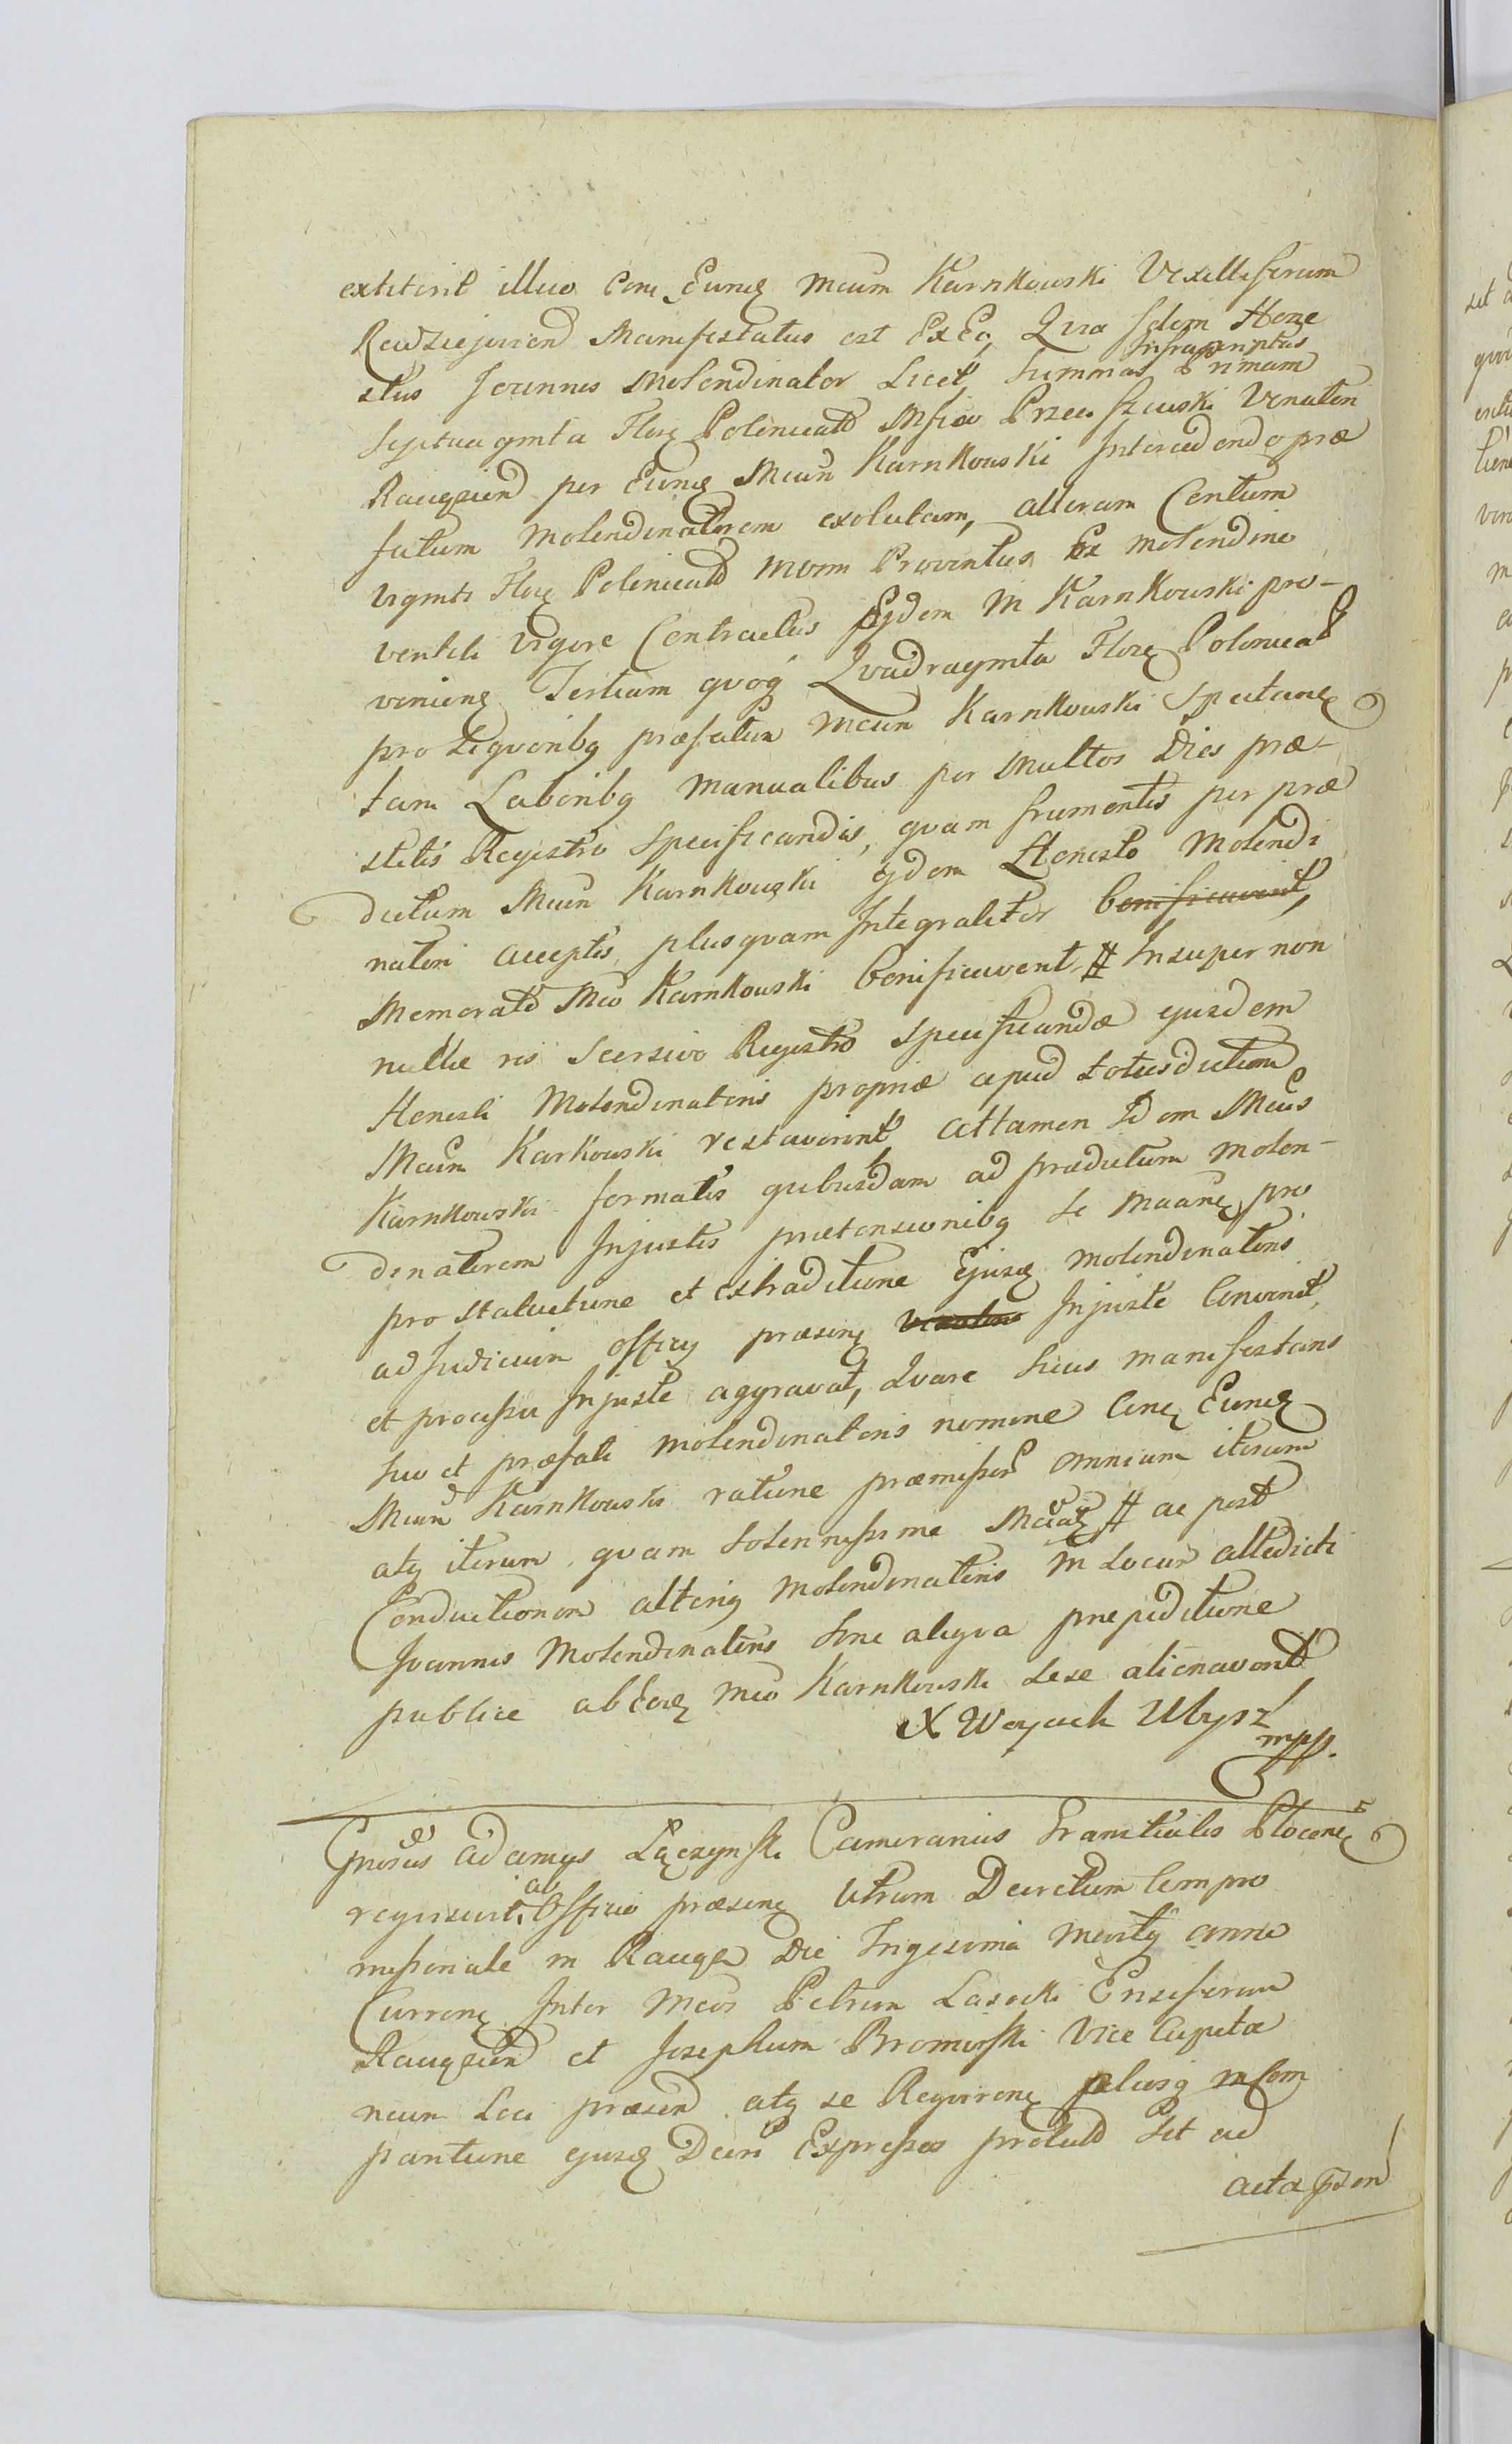 extiterit illico Con Eunq Mcum Karnkowski Vexilliferum
Radziejovien Manifestatus est Ex Eo, Qvia Idem Hone
stus Joannes Molendinator Licet Summas Infrascriptas Primam
Septuaginta Flor Polonicald Msfico Przeciszewski Venatori
Raciążien per Eunq Mcum Karnkowski Intercedendo præ
fatum Molendinatorem exolutam, alteram Centum
viginti Flor Polonicald Proventus Ex Molendino
ventili vigore Contractus Ejdem M Karnkowski pro-
venienq Tertiam qvoq Qvadraginta Flor Polonical
pro Liqvoribq præfatum Mcum Karnkowski Spectanq
tam Laboribq Manualibus per Multos Dies præ-
stitis Registro Specificandis, qvam frumentis per præ
dictum Mcum Karnkowski ejdem Honesto Molendi
natori acceptis, plusqvam Integraliter bonificaverit,
Memorato Mco Karnkowski bonificaverit # Insuper non
nullæ res Scorsivo Registro Specificandæ ejusdem
Honesti Molendinatoris propriæ apud totiesdictum
Mcum Karkowski restaverint attamen Idem Mcus
Karnkowski formatis qvibusdam ad prædictum Molen-
dinatorem Injustis prætensionibq se Maanq pro
pro statuitione et extraditione Ejusq Molendinatoris
ad Judicium Officy præsenq Injuste Convenit,
et processu Injuste aggravat, Qvare hicus manifestans
suo et præfati Molendinatoris nomine Conq Eunq
Mcum Karnkowski ratione præmissor omnium iterum
atq iterum qvam Solennissime # ac post
Conductionem alteriq Molendinatoris in Locum attedicti
Joannis Molendinatoris Sine aliqva præpeditione
publice ab Eodq Mco Karnkowski sese alienavent
X Woyciech Ulysz
mpp.
Gnosus Adamus Łączyński Camerarius Granitialis Plocenq
reqvisivit ab Officio præsenq Utrum Decretum Compro
missoriale in Raciąż Die Trigesima Mensq anni
Currenq Inter Mcos Petrum Lasocki Ensiferum
Raciążien et Josephum Bromirski Vice Capita
neum Loci præsen atq se Reqvirenq
partione ejusq Decri Expressos prolatd Sit ad
acta psen